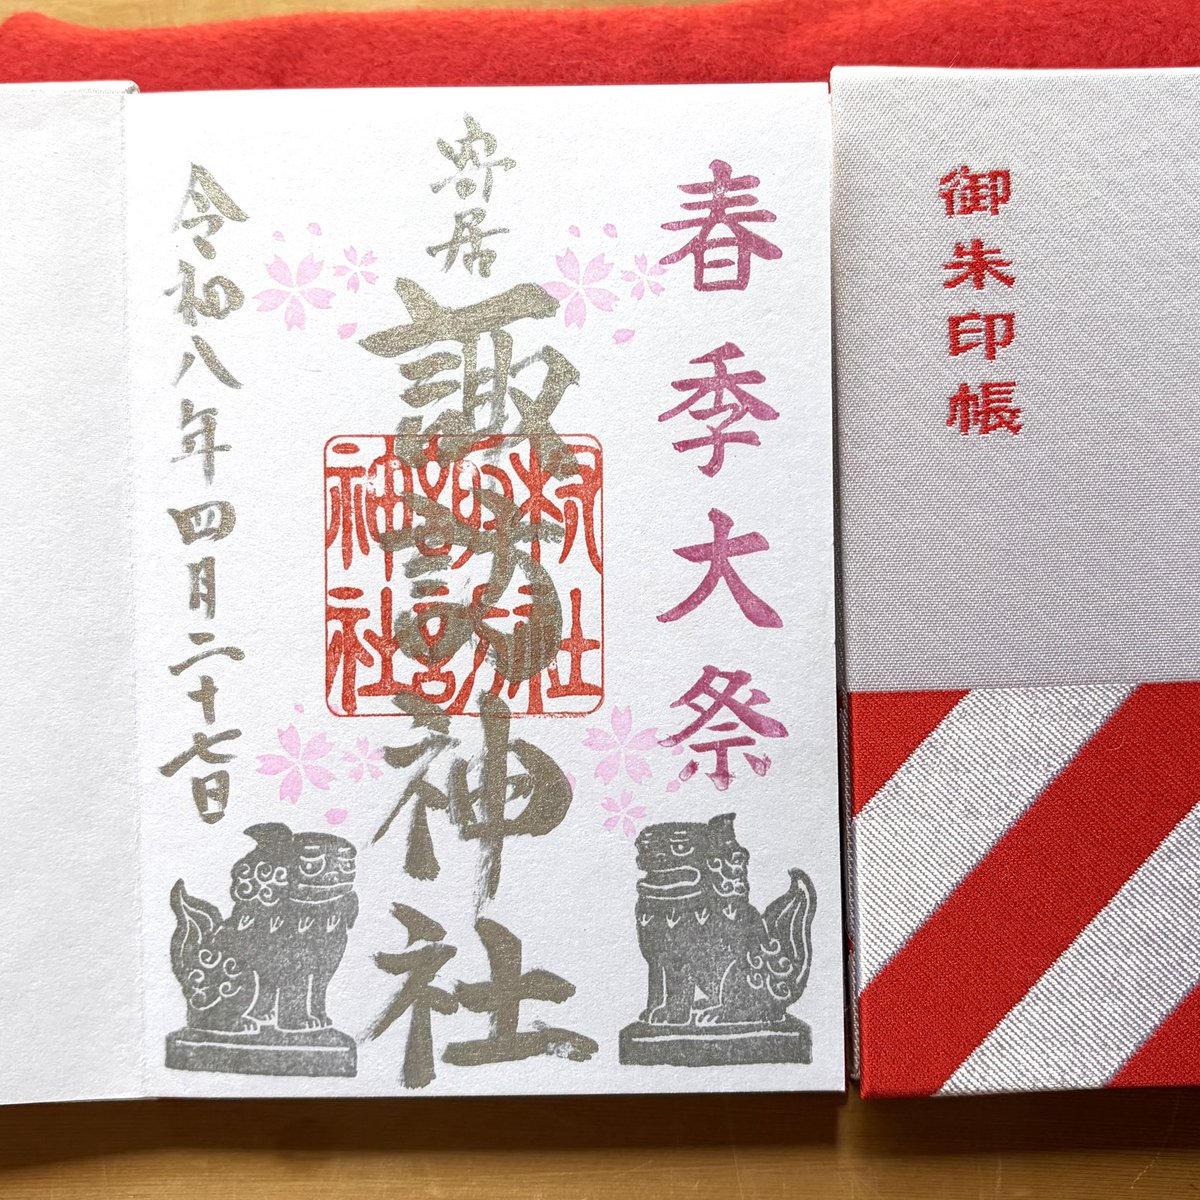 春季大祭
寄居
諏訪神社
村社
諏訪
神社
令和八年四月二十七日
御朱印帳